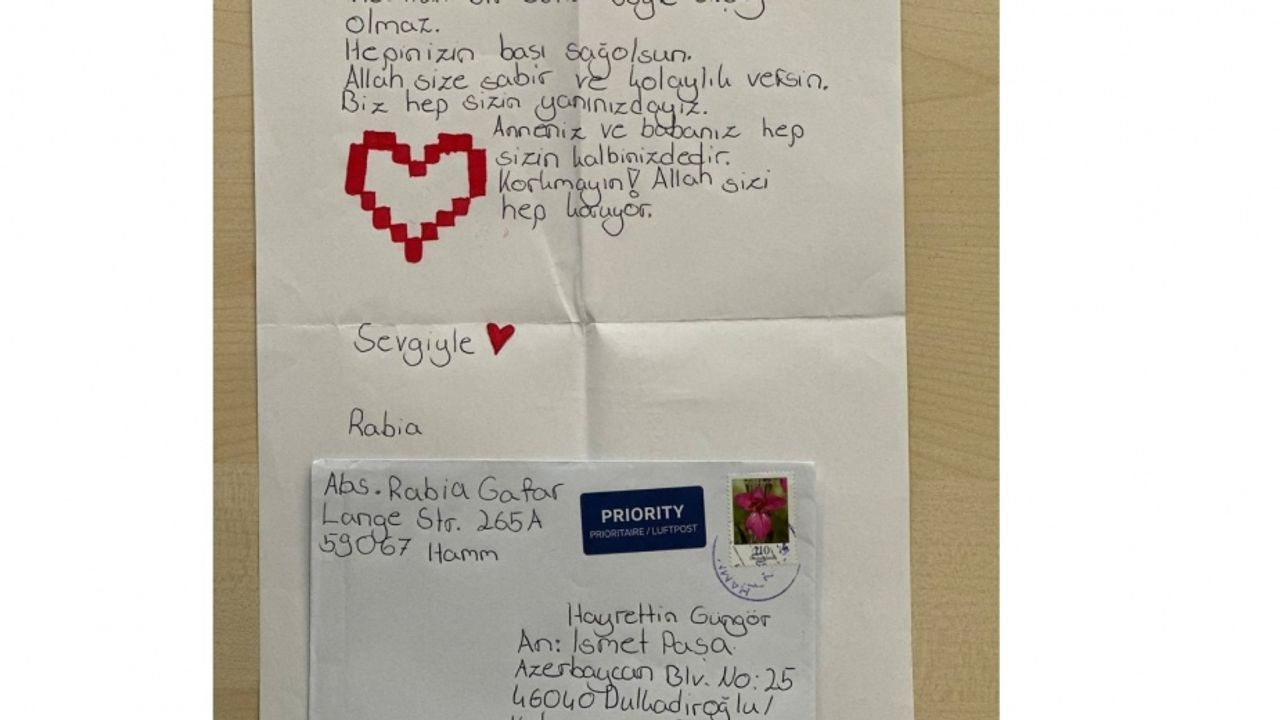 olmaz.
Hepinizin başı sağolsun.
Allah size sabir ve kolaylık versin.
Biz hep sizin yanınızdayız.
Anneniz ve babanız hep
sizin kalbinizdedir.
Korkmayın! Allah sizi
hep koruyor.
Sevgiyle
Rabia
Abs. Rabia Gafar
Lange Str. 265A
59067 Hamm
PRIORITY
PRIORITAIRE / LUFTPOST
110
Hayrettin Güngör
An: Ismet Paşa
Azerbaycan Blv. No: 25
46040 Dulkadiroğlu/